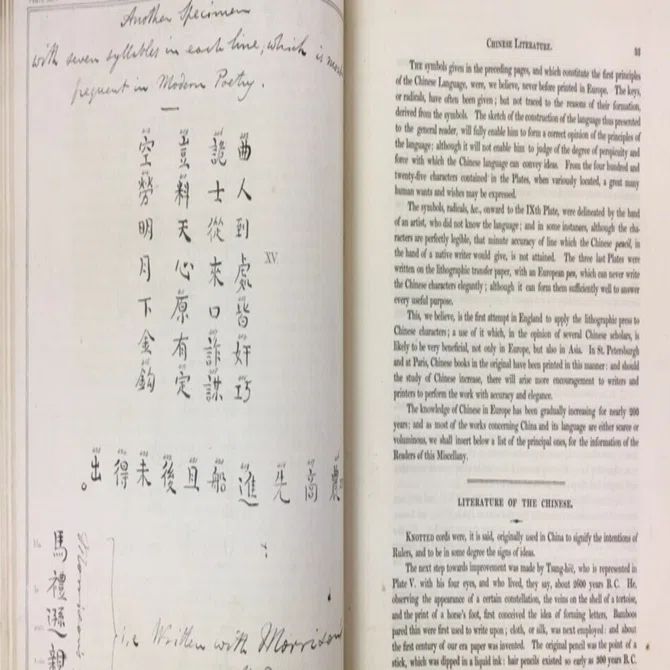 Another Specimen
with seven syllables in each line, which is most
frequent in Modern Poetry.
曲人到處皆奸巧
詭士從來口詐謀
豈料天心原有定
空勞明月下金鈎
XV
高先進船且後未得出。
馬禮遜親
Morrison's
i.e. Written with Morrison
CHINESE LITERATURE. 33
THE symbols given in the preceding pages, and which constitute the first principles
of the Chinese Language, were, we believe, never before printed in Europe. The keys,
or radicals, have often been given; but not traced to the reasons of their formation,
derived from the symbols. The sketch of the construction of the language thus presented
to the general reader, will fully enable him to form a correct opinion of the principles of
the language: although it will not enable him to judge of the degree of perspicuity and
force with which the Chinese language can convey ideas. From the four hundred and
twenty-five characters contained in the Plates, when variously located, a great many
human wants and wishes may be expressed.
The symbols, radicals, &c., onward to the IXth Plate, were delineated by the hand
of an artist, who did not know the language; and in some instances, although the cha-
racters are perfectly legible, that minute accuracy of line which the Chinese pencil, in
the hand of a native writer would give, is not attained. The three last Plates were
written on the lithographic transfer paper, with an European pen, which can never write
the Chinese characters elegantly; although it can form them sufficiently well to answer
every useful purpose.
This, we believe, is the first attempt in England to apply the lithographic press to
Chinese characters; a use of it which, in the opinion of several Chinese scholars, is
likely to be very beneficial, not only in Europe, but also in Asia. In St. Petersburgh
and at Paris, Chinese books in the original have been printed in this manner: and should
the study of Chinese increase, there will arise more encouragement to writers and
printers to perform the work with accuracy and elegance.
The knowledge of Chinese in Europe has been gradually increasing for nearly 200
years; and as most of the works concerning China and its language are either scarce or
voluminous, we shall insert below a list of the principal ones, for the information of the
Readers of this Miscellany.
LITERATURE OF THE CHINESE.
KNOTTED cords were, it is said, originally used in China to signify the intentions of
Rulers, and to be in some degree the signs of ideas.
The next step towards improvement was made by Tsang-hëĕ, who is represented in
Plate V. with his four eyes, and who lived, they say, about 2600 years B.C. He,
observing the appearance of a certain constellation, the veins on the shell of a tortoise,
and the print of a horse's foot, first conceived the idea of forming letters. Bamboos
pared thin were first used to write upon; cloth, or silk, was next employed: and about
the first century of our era paper was invented. The original pencil was the point of a
stick, which was dipped in a liquid ink: hair pencils existed so early as 300 years B.C.